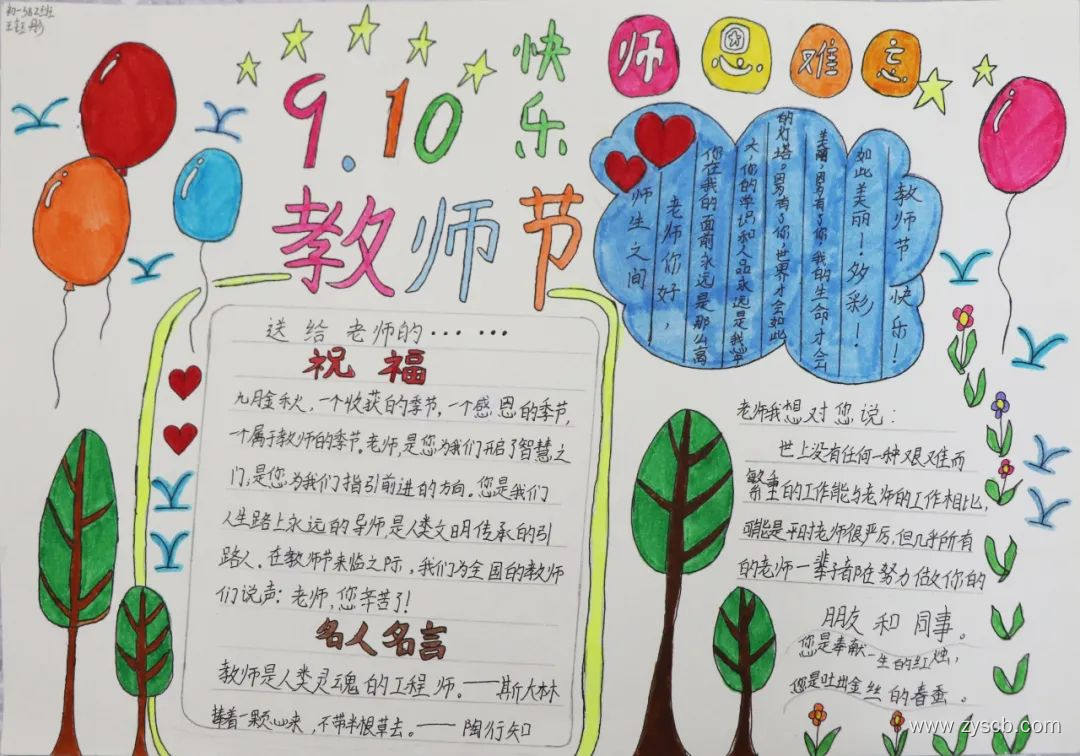 王钰彤
9.10
快乐
教师节
师恩难忘
师生之间
老师你好，
你在我的面前永远是那么高
大，你的学识和人品永远是我心中
的灯塔。因为有了你，世界才会如此
美丽，因为有了你，我的生命才会
如此美丽！多彩！
教师节快乐！
送给老师的……
祝福
九月金秋，一个收获的季节，一个感恩的季节，
一个属于教师的季节。老师，是您为我们开启了智慧之
门，是您为我们指引前进的方向。您是我们
人生路上永远的导师，是人类文明传承的引
路人。在教师节来临之际，我们为全国的教师
们说声：老师，您辛苦了！
名人名言
教师是人类灵魂的工程师。——斯大林
捧着一颗心来，不带半根草去。——陶行知
老师我想对您说：
世上没有任何一种艰难而
繁重的工作能与老师的工作相比，
可能是平时老师很严厉，但几乎所有
的老师一辈子都在努力做你的
朋友和同事。
您是奉献一生的红烛，
您是吐出金丝的春蚕。
www.zyscb.com